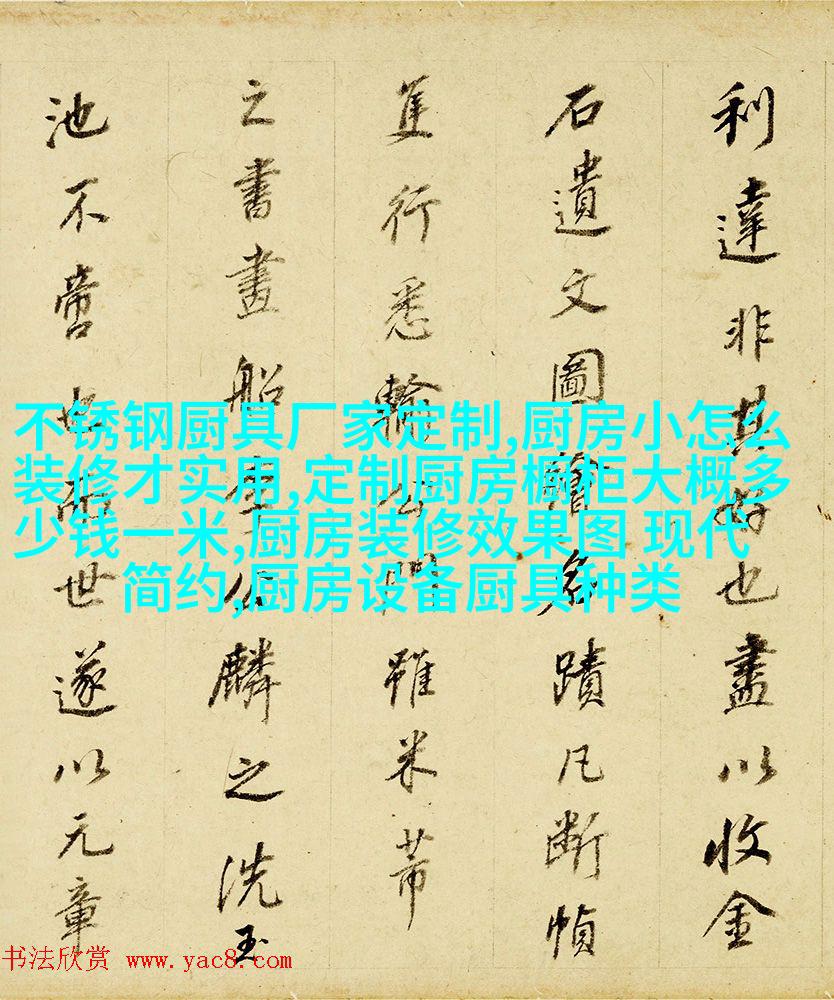 利達非其好也盡以收金
石遺文圖繪名蹟凡斷幀
隻行悉輸公門雖米芾
之書畫船李公麟之洗玉
池不啻也而世遂以元章
不锈钢厨具厂家定制,厨房小怎么
装修才实用,定制厨房橱柜大概多
少钱一米,厨房装修效果图 现代
简约,厨房设备厨具种类
书法欣赏 www.yac8.com